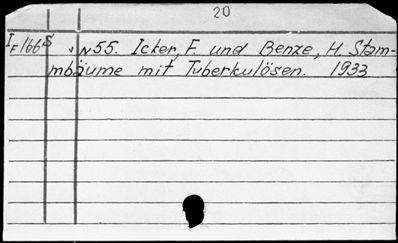 20
IF 166S , N55. Icker, F. und Benze, H. Stam-
mbäume mit Tuberkulösen. 1933